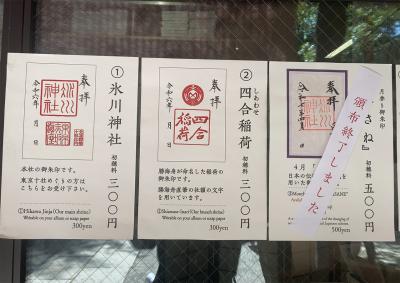 ① 氷川神社
初穂料 三〇〇円
奉拝
氷川神社
令和六年 月 日
本社の御朱印です。
東京十社めぐりの方は
こちらをお受け下さい。
①Hikawa Jinja (Our main shrine)
Writable on your album or soap paper
300yen
② 四合稲荷
しあわせ
初穂料 三〇〇円
奉拝
四合稲荷
令和六年 月 日
勝海舟が命名した稲荷の
御朱印です。
勝海舟直筆の社額の文字
を用いています。
②Shiawase Inari (Our shrine)
Writable on your album or soap paper
300yen
月替り御朱印
さね』
五〇〇円
奉拝
4月
日本の
用いた
頒布終了しました
500yen